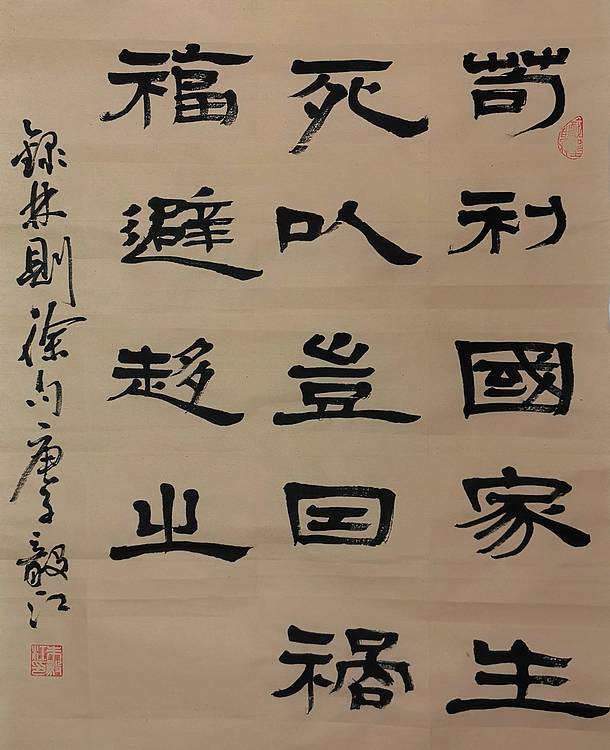 苟利國家生
死以豈因禍
福避趍之
録林則徐句庚子毅江